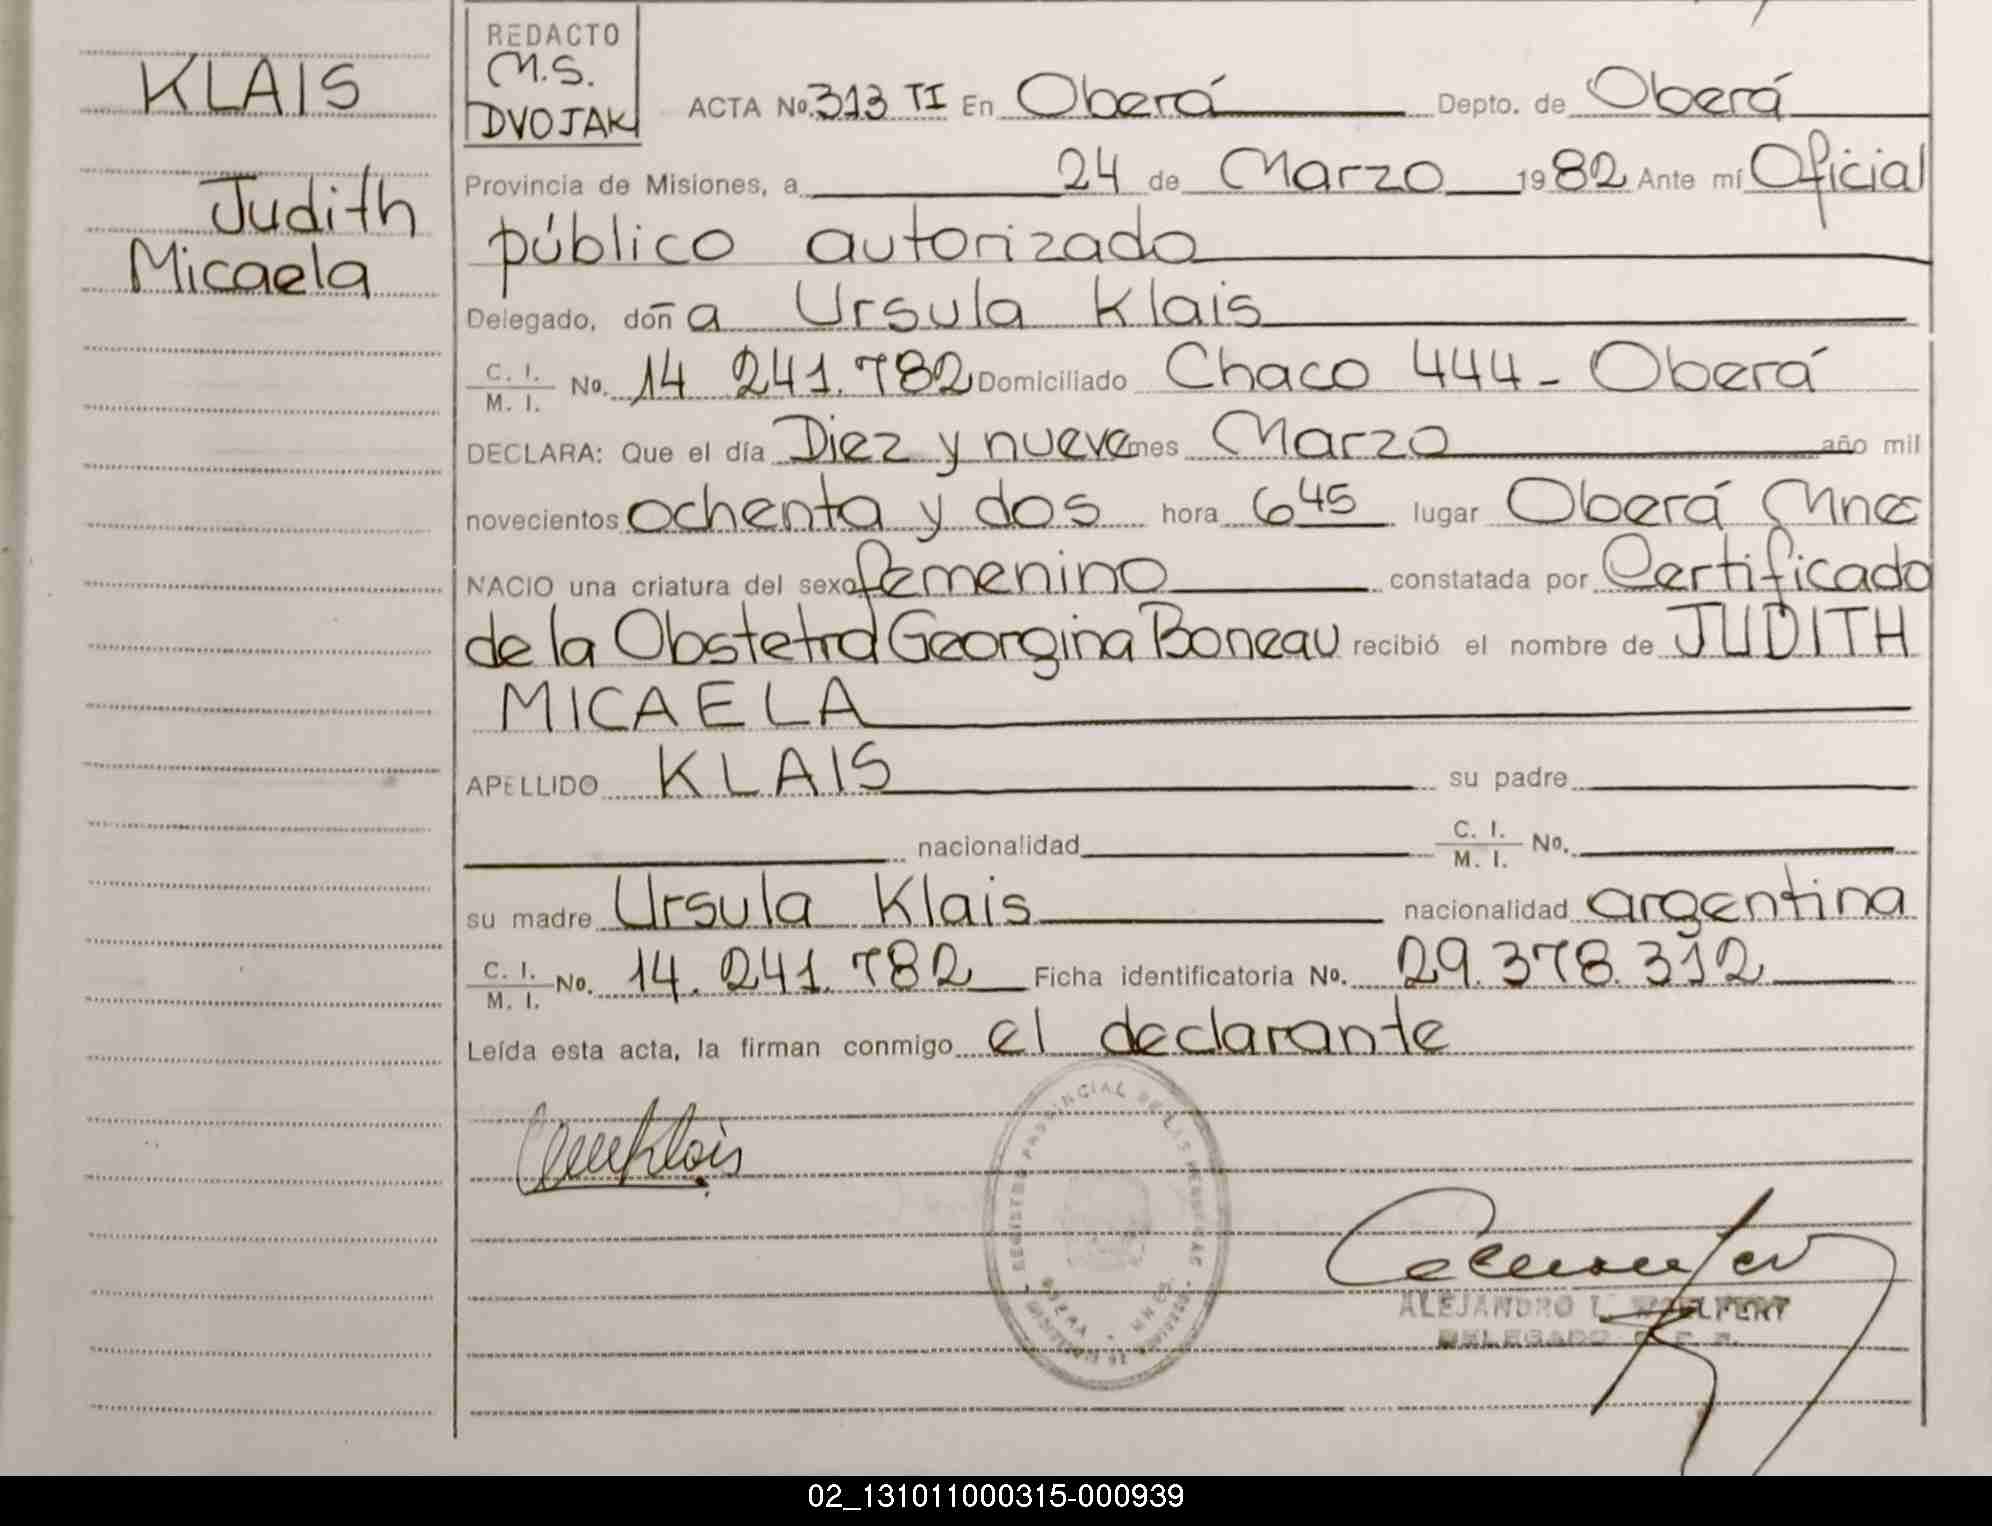 KLAIS
Judith
Micaela
REDACTO
M.S.
DVOJAK
ACTA No. 313 TI En Oberá Depto. de Oberá
Provincia de Misiones, a 24 de Marzo 1982 Ante mí Oficial
público autorizado
Delegado, doña Ursula Klais
C. I. / M. I. No. 14 241.782 Domiciliado Chaco 444 - Oberá
DECLARA: Que el día Diez y nueve mes Marzo año mil
novecientos ochenta y dos hora 6 45 lugar Oberá Mnes
NACIO una criatura del sexo femenino constatada por Certificado
de la Obstetra Georgina Boneau recibió el nombre de JUDITH
MICAELA
APELLIDO KLAIS su padre
nacionalidad C. I. / M. I. No.
su madre Ursula Klais nacionalidad argentina
C. I. / M. I. No. 14.241.782 Ficha identificatoria No. 29.378.312
Leída esta acta, la firman conmigo el declarante
REGISTRO PROVINCIAL DE LAS PERSONAS
OBERA MNES.
ALEJANDRO L. WOELFERT
DELEGADO
02_131011000315-000939